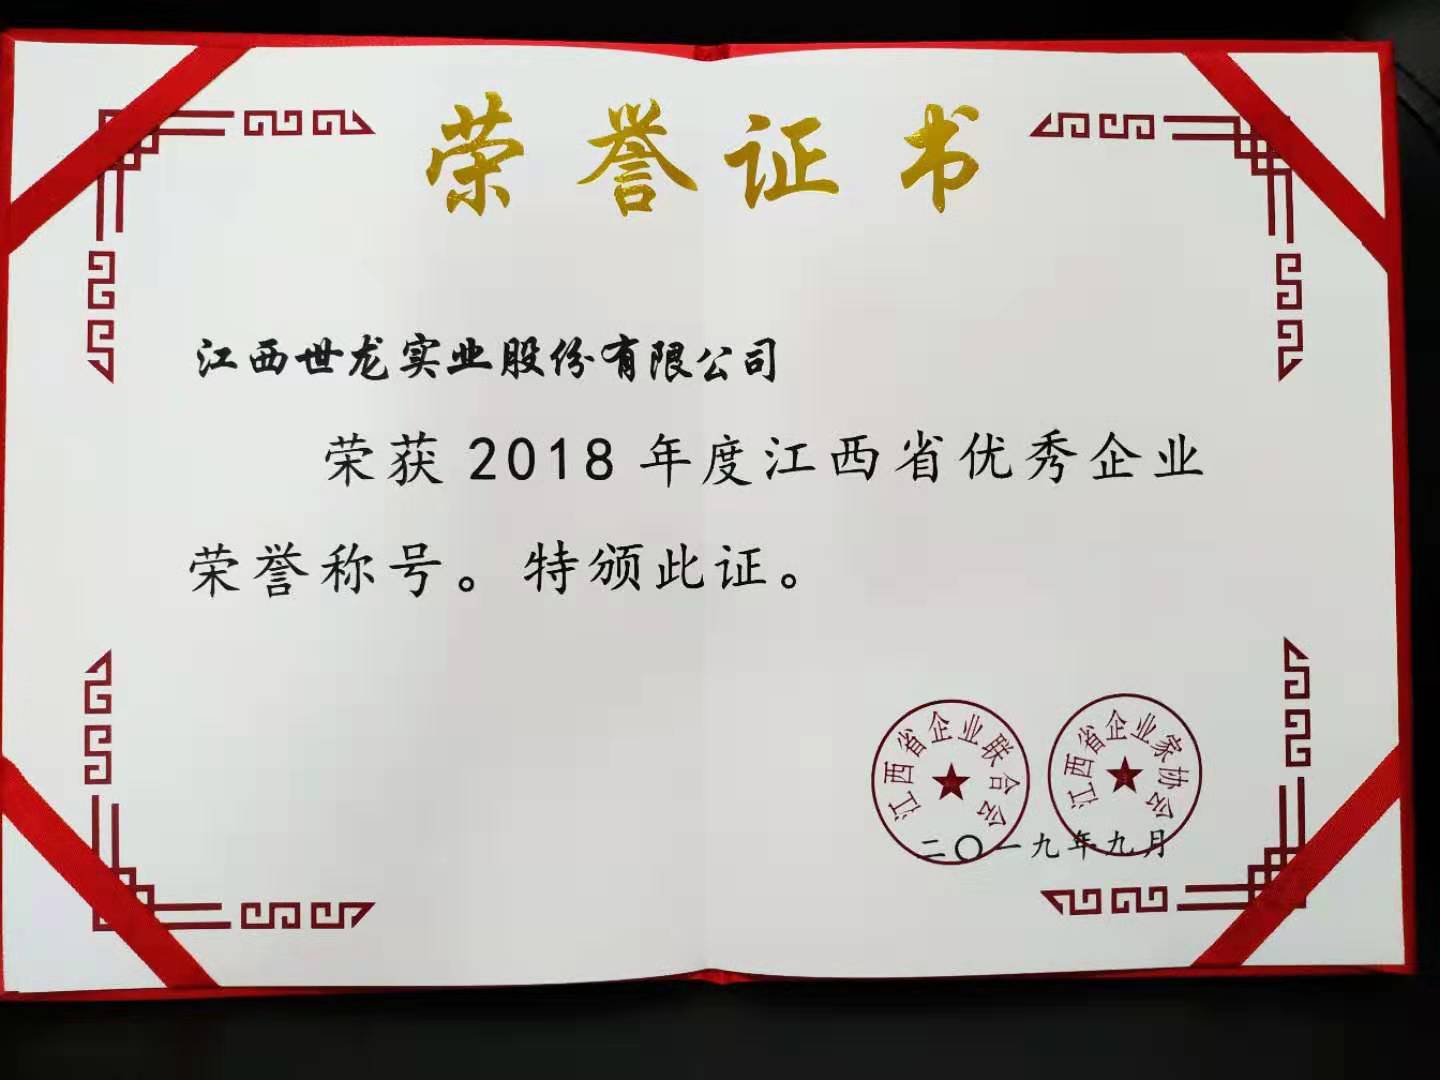 荣誉证书
江西世龙实业股份有限公司
荣获2018年度江西省优秀企业
荣誉称号。特颁此证。
江西省企业联合会
江西省企业家协会
二〇一九年九月